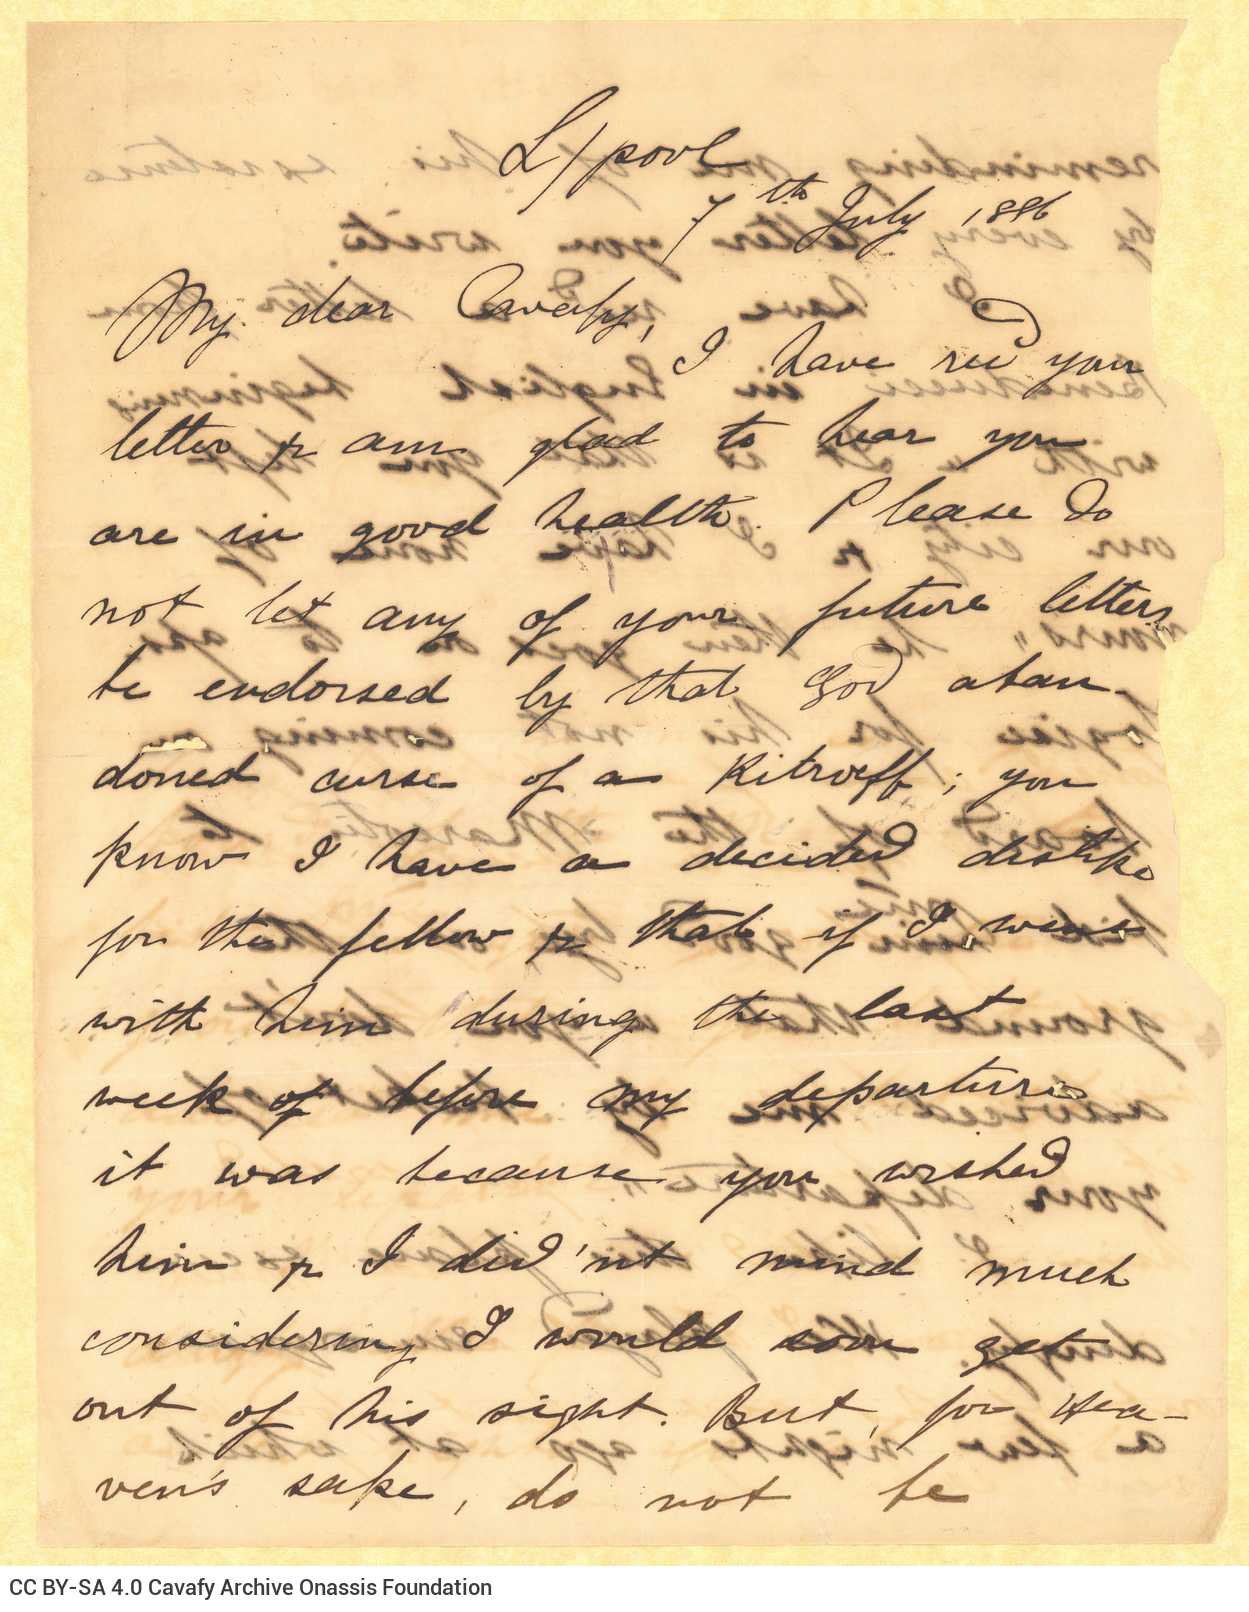 L/pool
7th July 1886
My dear Cavafy,
I have recd your
letter & am glad to hear you
are in good health. Please do
not let any of your future letters
be endorsed by that God aban-
doned curse of a Kitroeff; you
know I have a decided dislike
for the fellow & that if I were
with him during the last
week of before my departure
it was because you wished
him & I did'nt mind much
considering I would soon get
out of his sight. But, for Hea-
ven's sake, do not be
CC BY-SA 4.0 Cavafy Archive Onassis Foundation